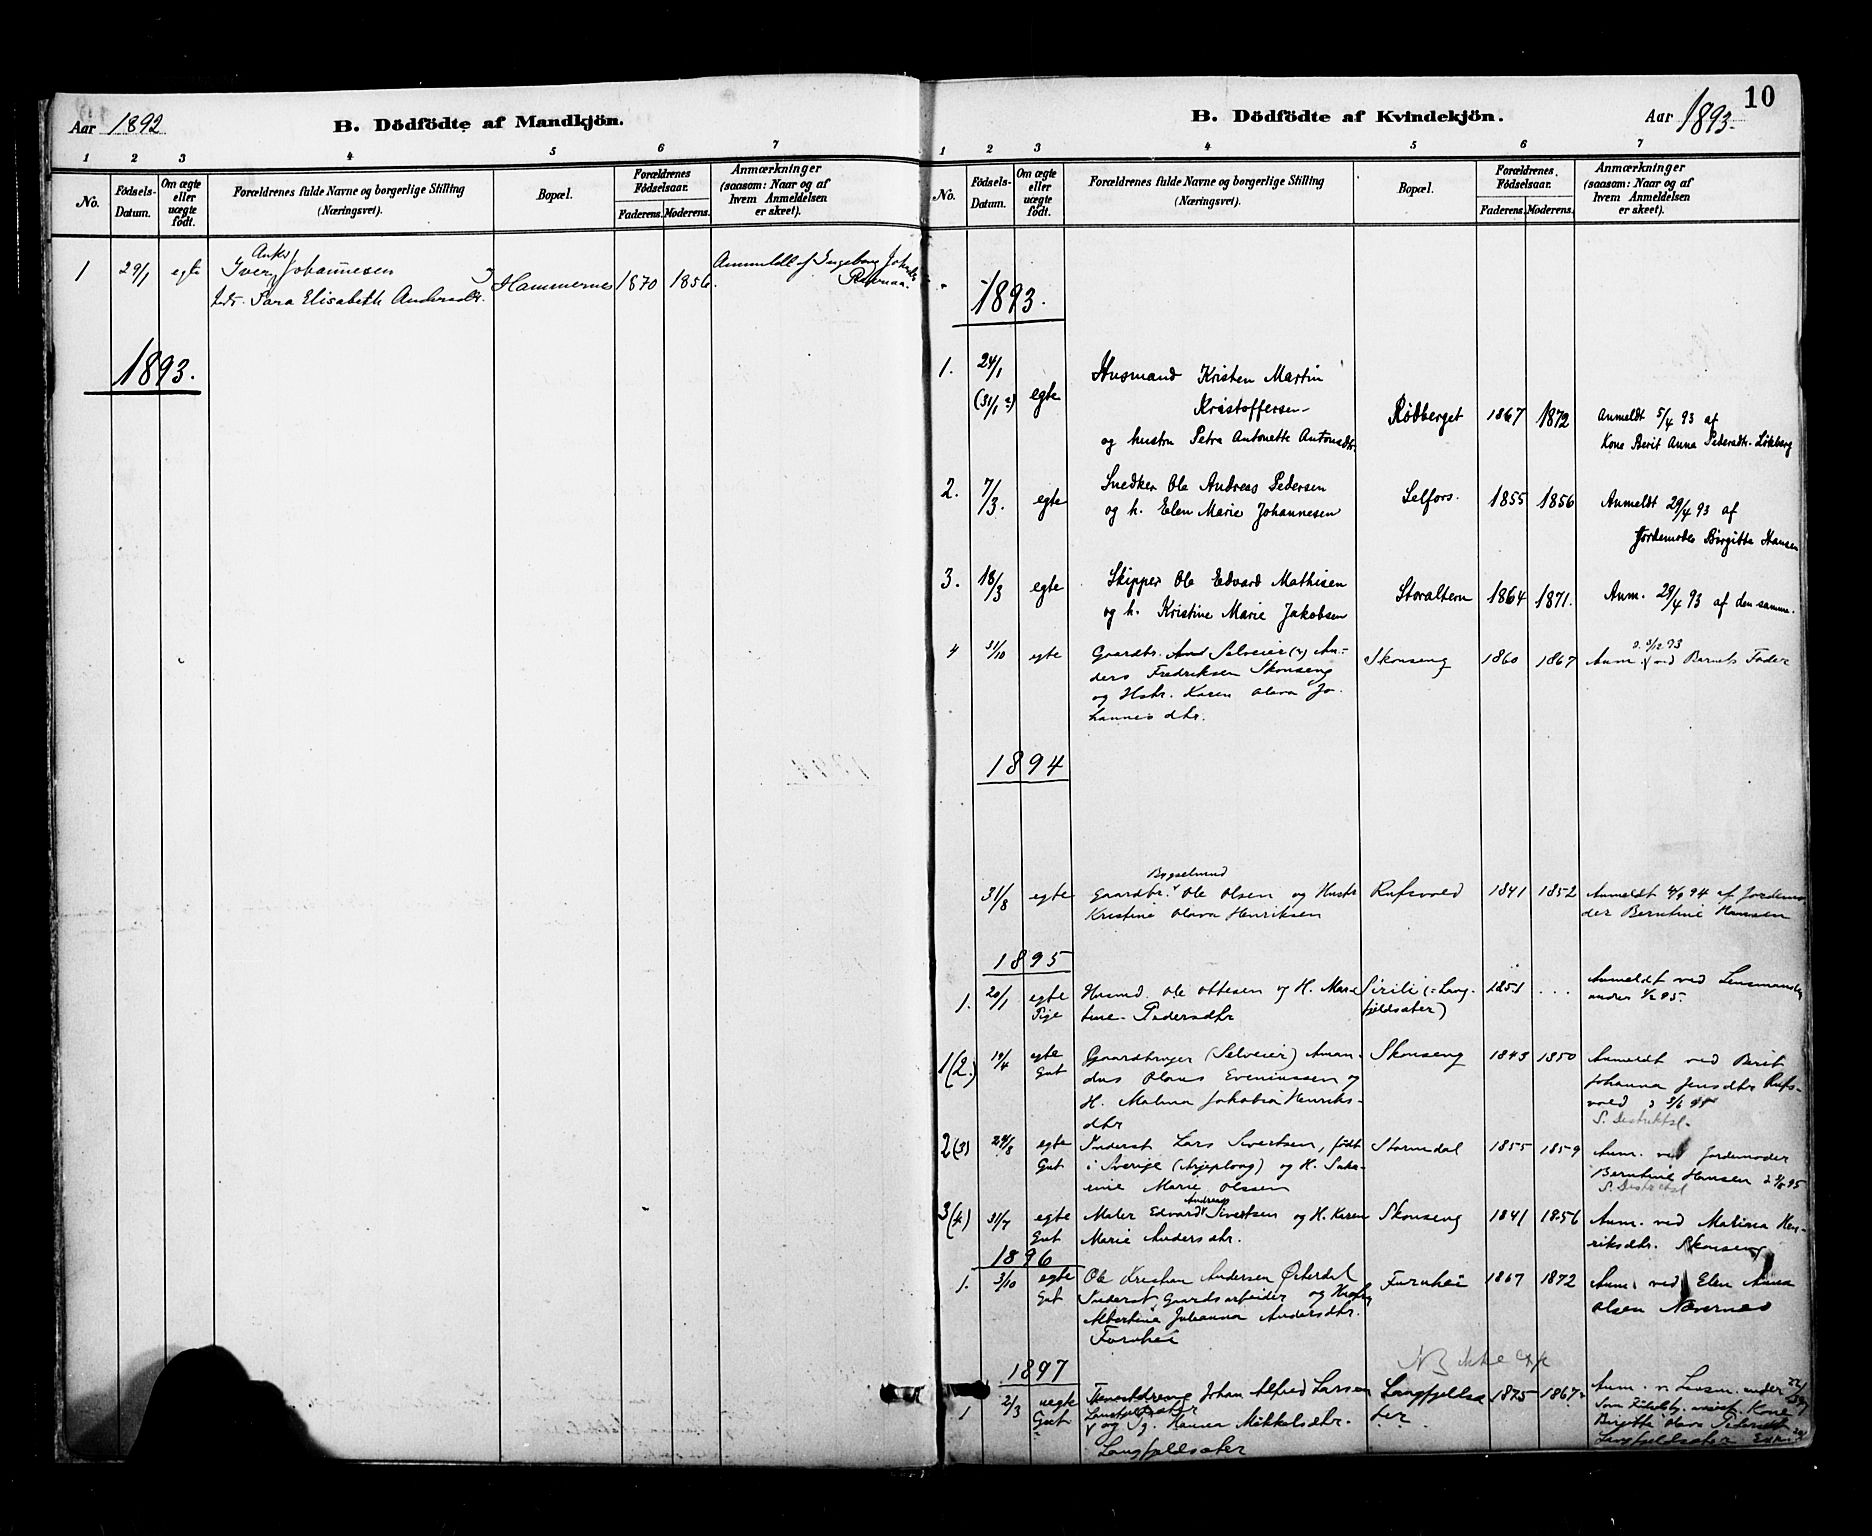 Aar 1892
B. Dödfödte af Mandkjön.
1 2 3 4 5 6 7
No.
Födsels-
Datum.
Om ægte
eller
uægte
født.
Forældrenes fulde Navne og borgerlige Stilling
(Næringsvei).
Bopæl.
Forældrenes
Födselsaar.
Faderens. Moderens.
Anmærkninger
(saasom: Naar og af
hvem Anmeldelsen
er skeet).
1 29/1 egte
Iver Johannesen
Sara Elisabeth Andersdtr.
Hammernes 1870 1856.
Anmeldt af Ingeborg
1893.
10
B. Dödfödte af Kvindekjön.
Aar 1893.
1 2 3 4 5 6 7
No.
Födsels-
Datum.
Om ægte
eller
uægte
födt.
Forældrenes fulde Navne og borgerlige Stilling
(Næringsvei).
Bopæl.
Forældrenes
Födselsaar.
Faderens. Moderens.
Anmærkninger
(saasom: Naar og af
hvem Anmeldelsen
er skeet).
1893.
1. 24/1
(31/1 ?) egte
Husmand Kristen Martin
Kristoffersen
og hustru Petra Antonette Antonsdtr.
Rødberget 1867 1872
Anmeldt 5/4 93 af
Kone Berit Anna Pedersdtr. Løkberg
2. 7/3. egte
Snedker Ole Andreas Pedersen
og h. Elen Marie Johannesen
Selfors. 1855 1856
Anmeldt 29/4 93 af
Jordemoder Birgitte Hansen
3. 18/3 egte
Skipper Ole Edvard Mathisen
og h. Kristine Marie Jakobsen
Storaltern 1864 1871.
Anm. 29/4 93 af den samme.
4 31/10 egte
Gaardbr. Selveier An-
ders Fredriksen Skonseng
og Hstr. Karen Olava Jo-
hannesdtr.
Skonseng 1860 1867
Anm. ved Barnets Fader
1894
31/8 egte
Bygselmd
Gaardbr. Ole Olsen og Hustr
Kristine Olava Henriksen
Rufsvold 1841 1852
Anmeldt 4/9 94 af Jordemo-
der Berntine Hansen
1895
1. 20/1 egte
Pige
Husmd. Ole Ottesen og H. Mare
tine Pedersdtr
(= Lang-
fjeldsater)
1851 ...
Anmeldt ved Lensmanden
under 1/2 95.
1(2.) 19/4 egte
Gut
Gaardbruger (Selveier) Aman-
dus Olaus Eveniussen og
H. Malina Jakobia Henriks-
dtr
Skonseng 1843 1850
Anmeldt ved Berit
Johanna Jensdtr Rufs-
vold
S. Destriktsl.
2(3) 24/8 egte
Gut
Inderst Lars Sivertsen, født
i Sverige (Arjeploug) og H.
Marie Olsen
Stormdal 1855 1859
Anm. ved Jordemoder
Berntine Hansen
S. Destriktsl
3(4) 31/7 egte
Gut
Andreas
Maler Edvard Sivertsen og H. Karen
Marie Andersdtr.
Skonseng 1841 1856
Anm. ved Malina Hen-
riksdtr. Skonseng
1896
1. 3/10 egte
Gut
Ole Kristian Andersen Østerdal
Inderst Gaardsarbeider og
Albertine Julianna Andersdtr.
Furuhei
Furuhei 1867 1872
Anm. ved Elen Anna
Olsen Nævernes
1897
NB
1 2/3 uegte
Gut
Tjenestdreng Johan Alfred Larsen
Langfjeldsater
og Pg. Hanna Mikkelsdtr.
Langfjeldsater
Langfjeldsa
ter
1875 1867
Anm. v. Lensm. under
Kone
Birgitte Olava Pedersdtr
Langfjeldsater